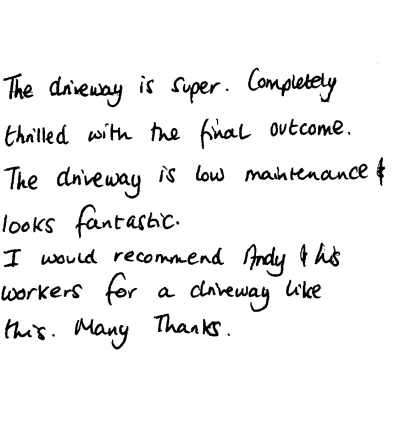 The driveway is super. Completely
thrilled with the final outcome.
The driveway is low maintenance &
looks fantastic.
I would recommend Andy & his
workers for a driveway like
this. Many Thanks.